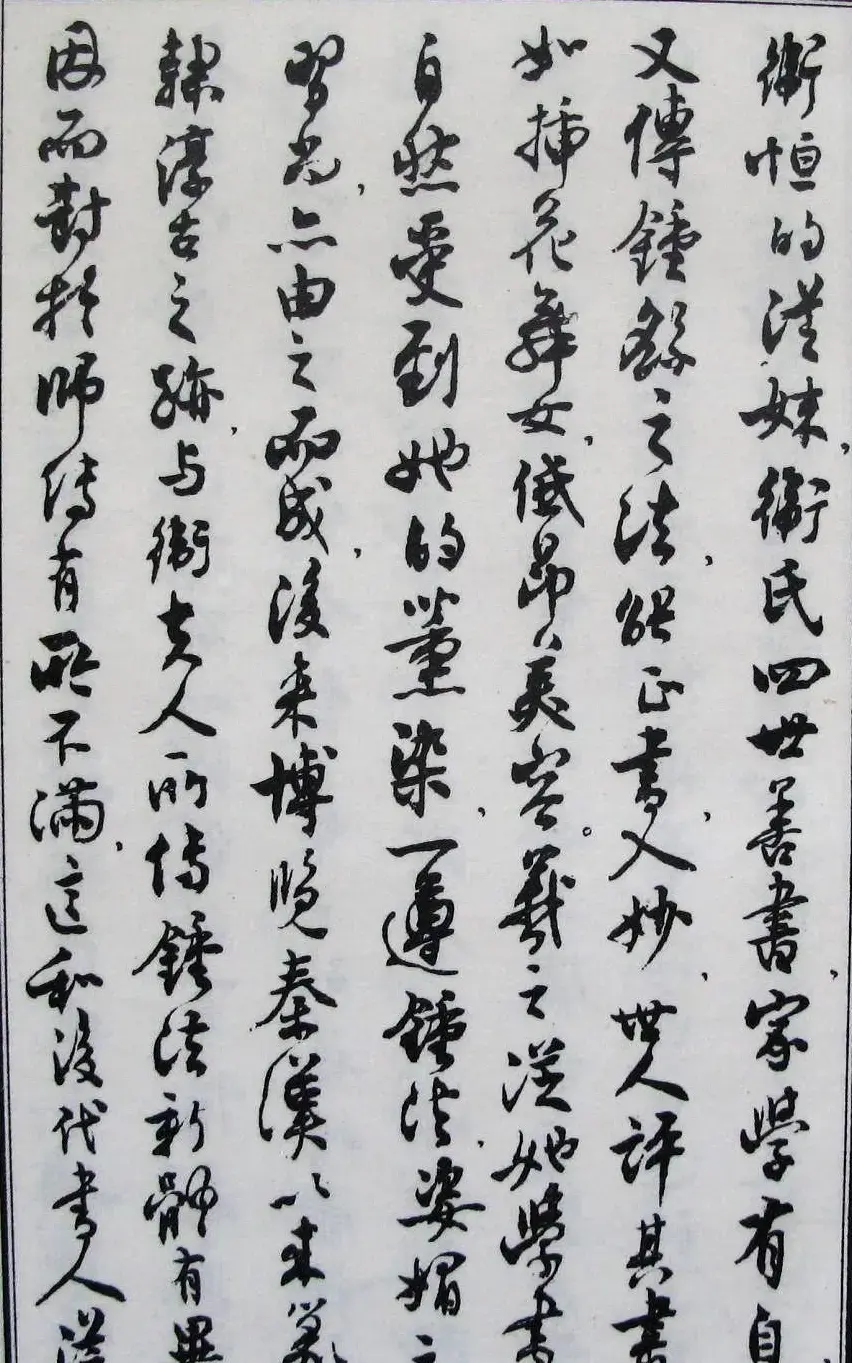 衛恒的從妹，衛氏四世善書，家學有自，
又傳鍾繇之法，能正書入妙，世人評其書
如插花舞女，低昂美容。羲之從她學書
自然受到她的薰染，一遵鍾法，姿媚之
習尚，亦由之而成，後来博覽秦漢以来篆
隸淳古之跡，与衛夫人所傳鍾法新體有異
因而對於師傳有所不滿，這和後代書人從